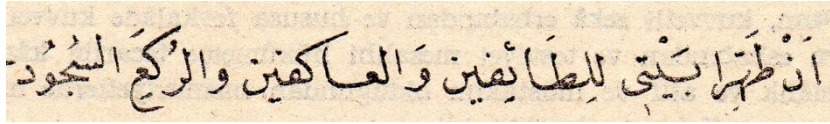 اَنْ طَهِّرَا بَيْتِى لِلِطَائِفين وَالعاكفين والرُكَعِ السُجُود